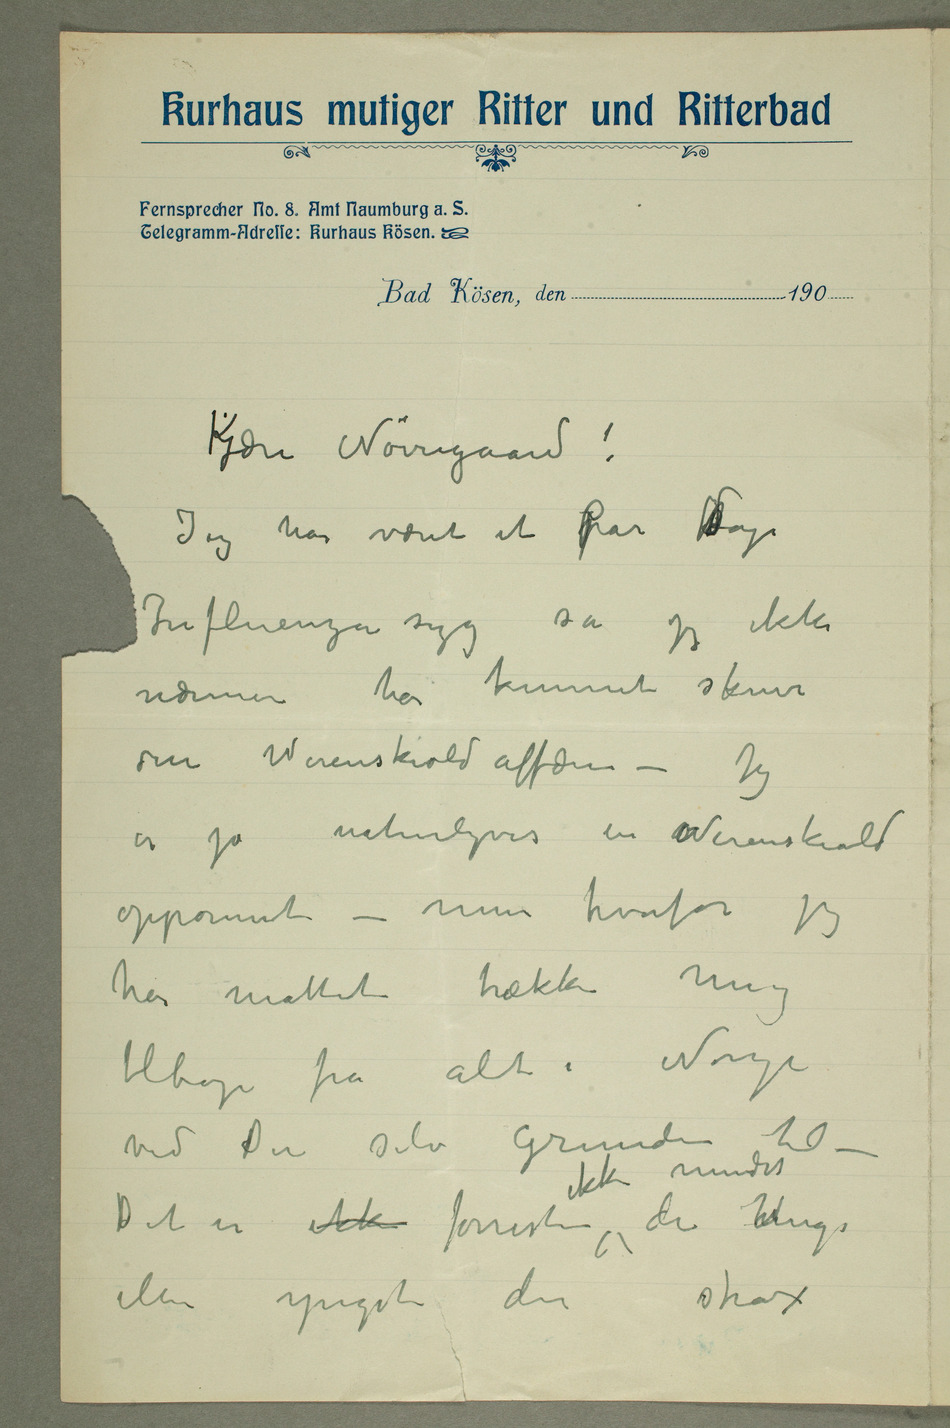 Kurhaus mutiger Ritter und Ritterbad
Fernsprecher No. 8. Amt Naumburg a. S.
Telegramm-Adresse: Kurhaus Kösen.
Bad Kösen, den 190
Kjære Nörregaard!
Jeg har været et Par Dage
Influenza syg så jeg ikke
nærmere har kunnet skrive
om Werenskiold affæren – Jeg
er jo naturligvis en Werenskiold
opponent – men hvorfor jeg
har måttet trække mig
tilbage fra alt i Norge
ved Du selv Grunden til –
Det er ikke forresten ikke mindst de Unge
eller yngste der strax